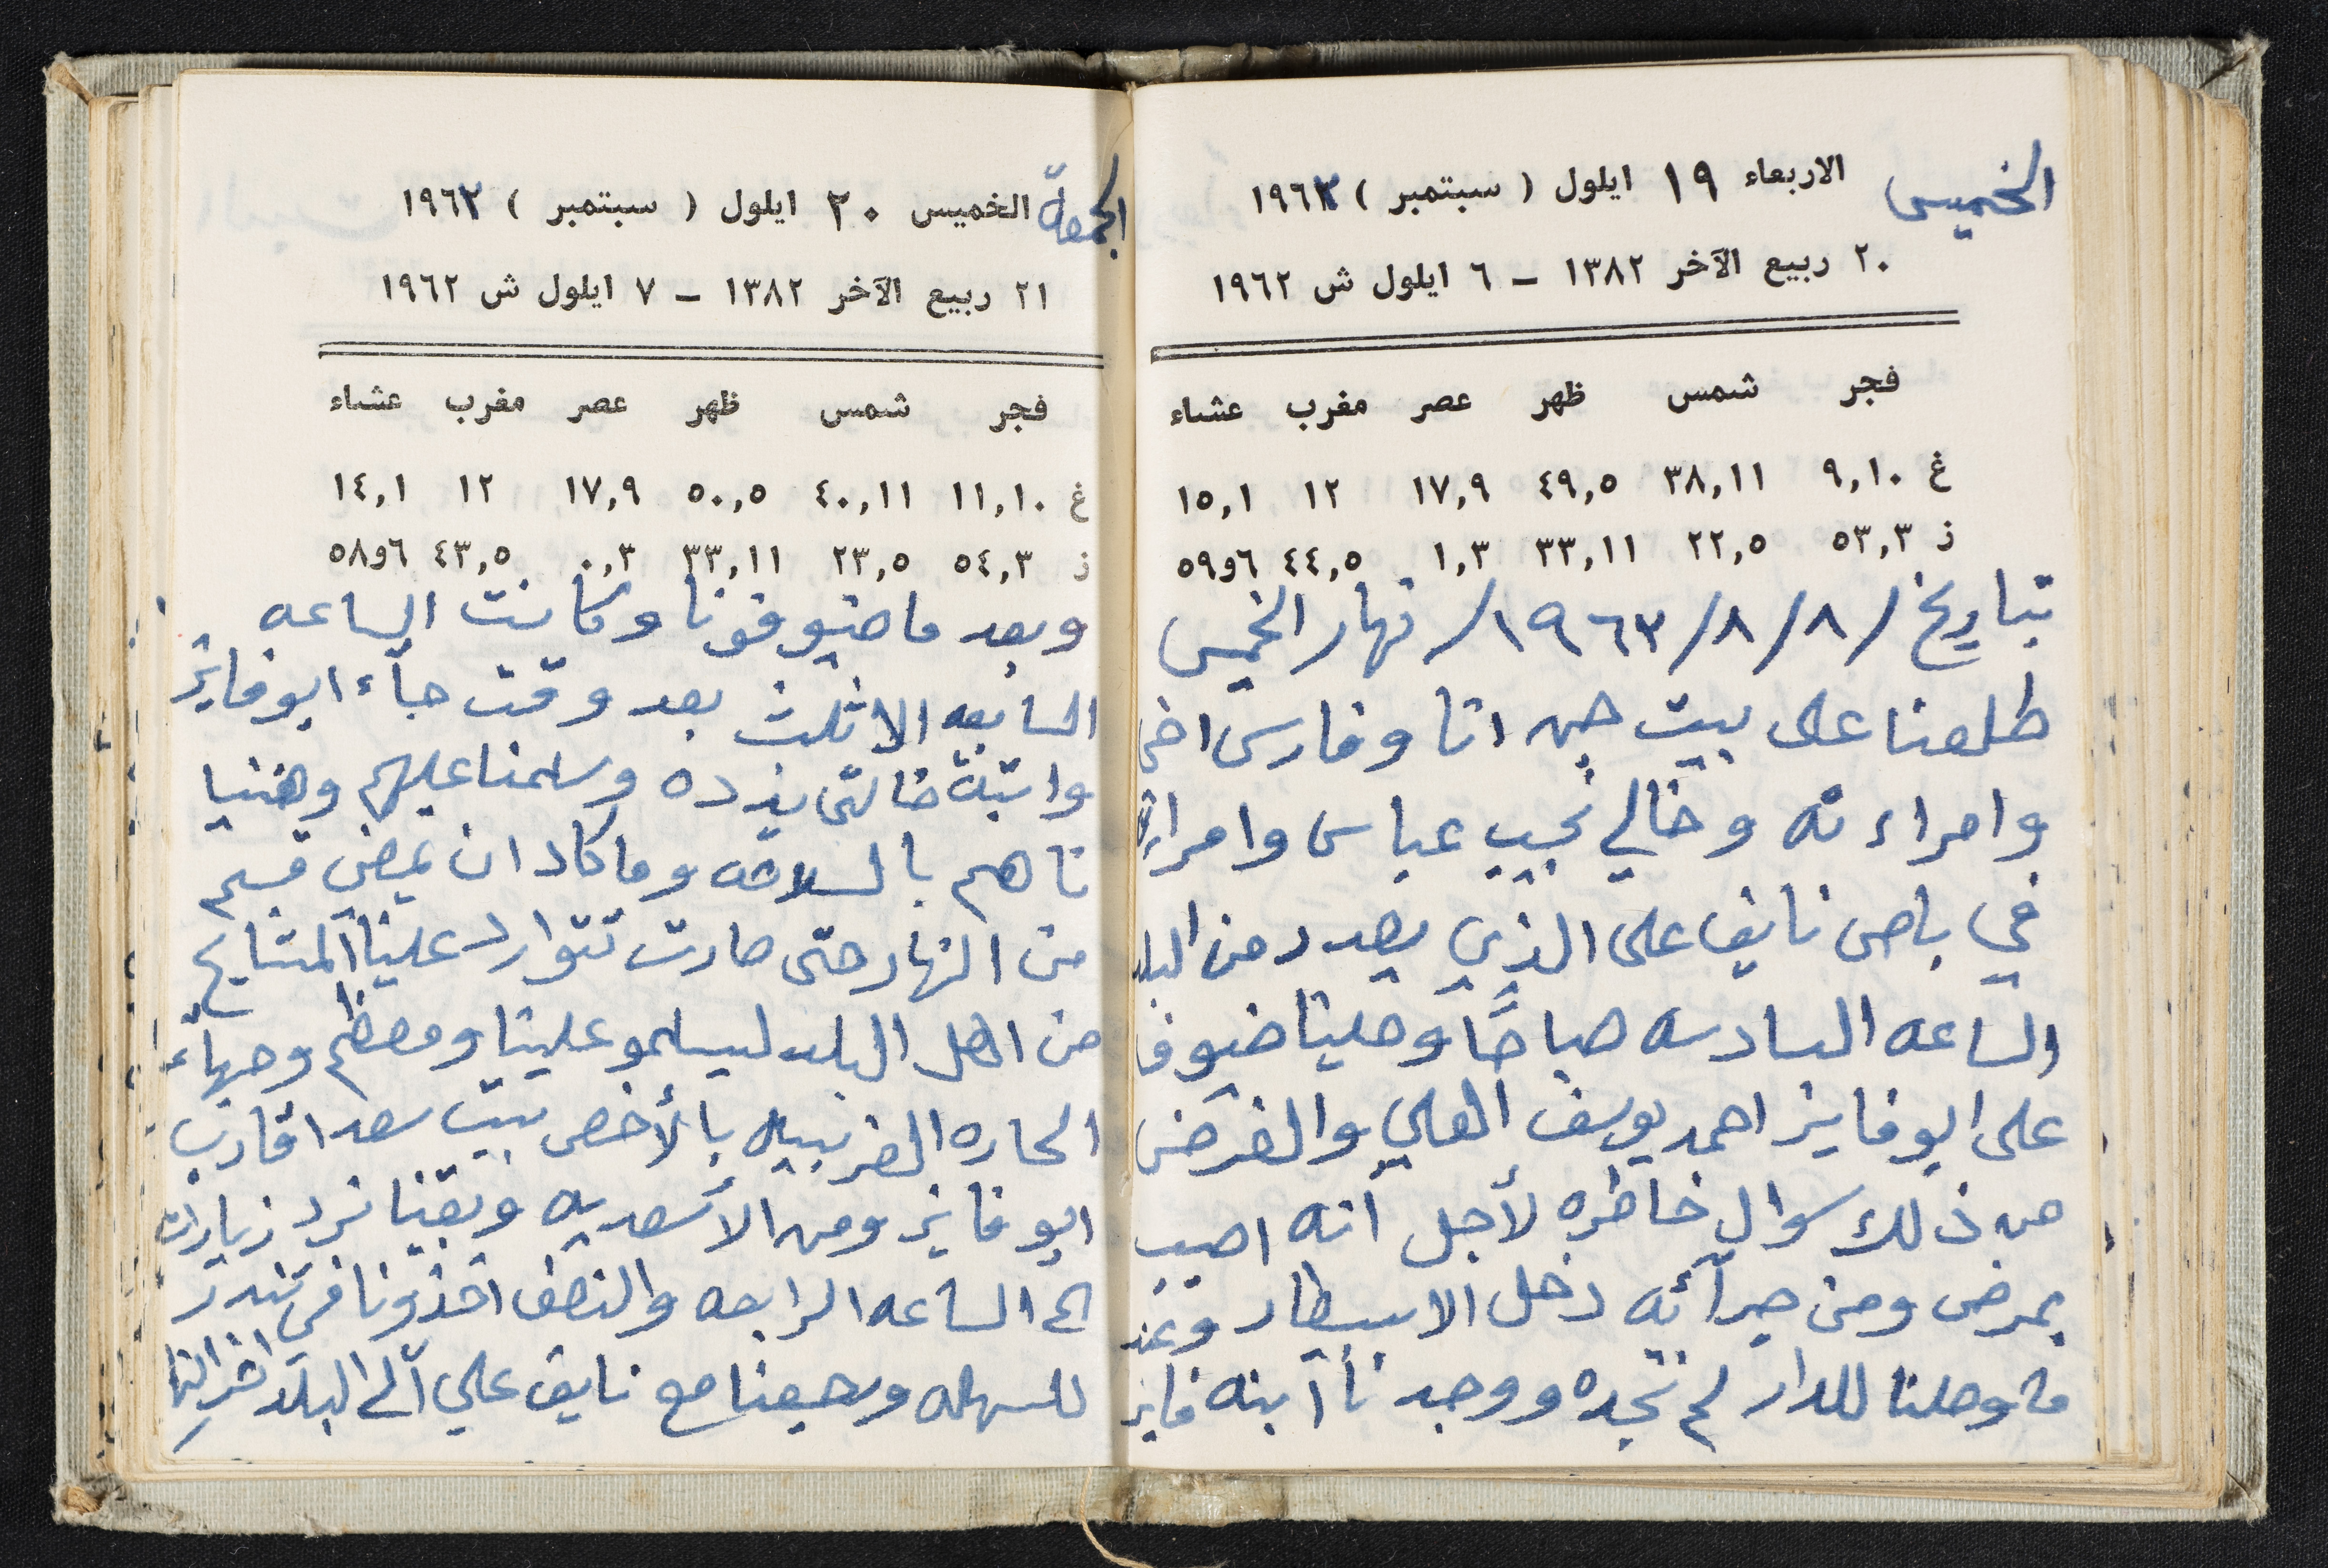 الخميس الاربعاء ١٩ ايلول ( سبتمبر ) ١٩٦٣
٢٠ ربيع الآخر ١٣٨٢ – ٦ ايلول ش ١٩٦٢
فجر شمس ظهر عصر مغرب عشاء
غ ٩,١٠ ٣٨,١١ ٤٩,٥ ١٧,٩ ١٢ ١٥,١
ز ٥٣,٣ ٢٢,٥ ٣٣,١١ ١,٣ ٤٤,٥ ٥٩و٦
بتاريخ /٨/٨/١٩٦٣/ نهار الخميس
طلعنا على بيت جن انا وفارس اخي
وامراءته وخالي نجيب عباس وامراته
في باص نايف على الذي يصدر من البلد
الساعه السادسه صباحًا وحلينا ضيوفا
على ابو فايز احمد يوسف العلي والغرض
من ذلك سوال خاطره لأجل أنه اصيب
بمرض ومن جرآئه دخل الاسبيطار وعند
ما وصلنا للدار لم نجده ووجدنا أبنه فايز
الجمعة الخميس ٢٠ ايلول ( سبتمبر ) ١٩٦٢
٢١ ربيع الآخر ١٣٨٢ – ٧ ايلول ش ١٩٦٢
فجر شمس ظهر عصر مغرب عشاء
غ ١١,١٠ ٤٠,١١ ٥٠,٥ ١٧,٩ ١٢ ١٤,١
ز ٥٤,٣ ٢٣,٥ ٣٣,١١ ٠,٣ ٤٣,٥ ٥٨و٦
وبعد ما ضيوفونا وكانت الساعه
السابعه الا ثلث بعد وقت جآء ابو فايز
وابنة خالتي وسلمنا عليهم وهنيا
ناهم بالسلامه وما كاد ان يمضي قسم
من النهار حتى صارت تتوارد علينا المشايخ
من اهل البلد ليسلمو علينا ومعظم وجهآء
الحاره الغربييه بالأخص بيت سعد اقارب
ابو فايز ومن الأسعديه وبقينا نرد زيارات
الى الساعه الرابعه والنصف اخذونا في تندر
للسهله ورجعنا مع نايف علي آلى البلد اخر النهار